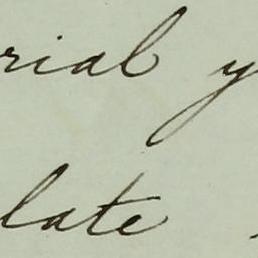 rial y
late